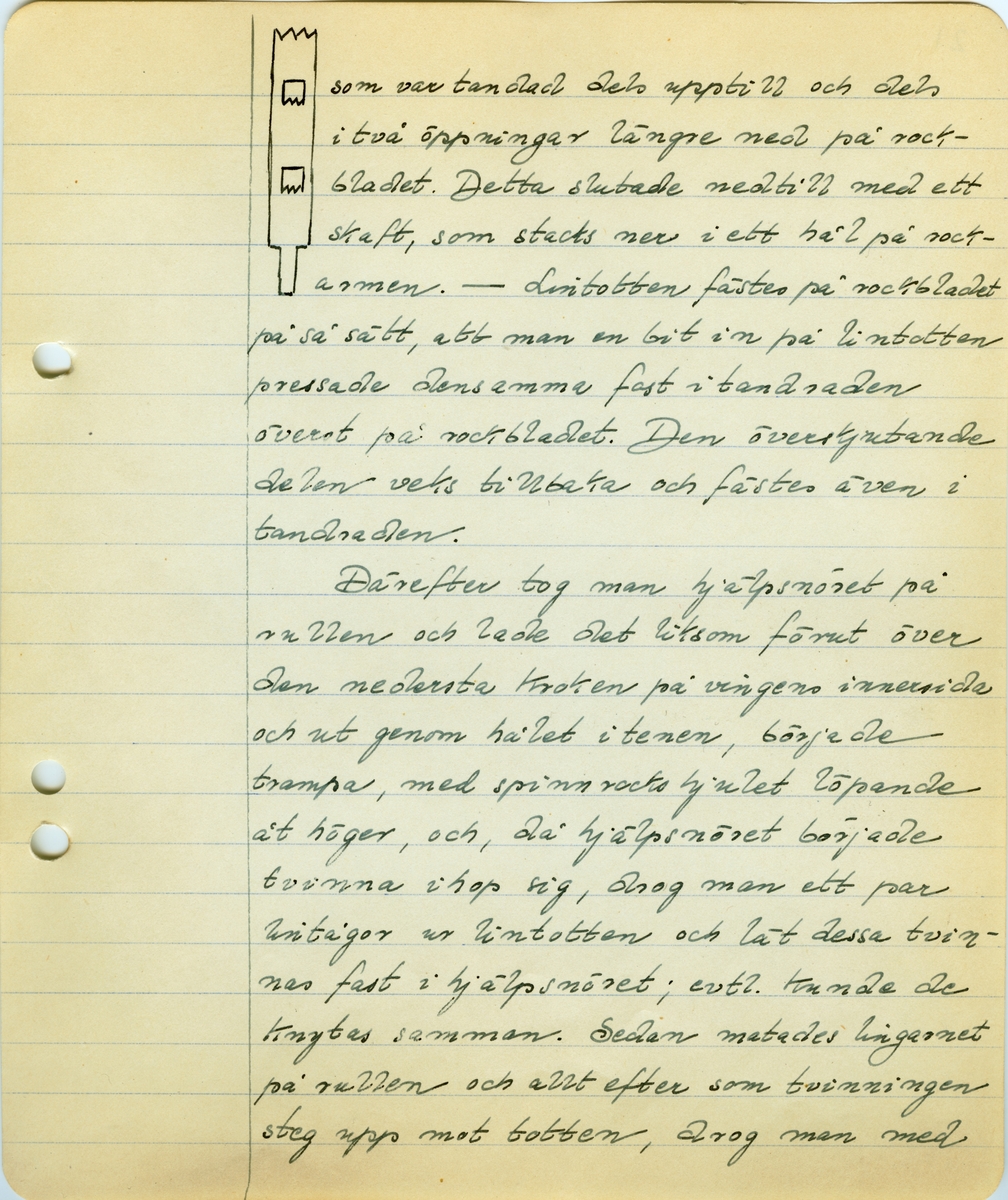 som var tandad dels upptill och dels
i två öppningar längre ned på rock-
bladet. Detta slutade nedtill med ett
skaft, som stacks ner i ett hål på rock-
armen. — Lintotten fästes på rockbladet
på så sätt, att man en bit in på lintotten
pressade densamma fast i tandraden
överst på rockbladet. Den överskjutande
delen veks tillbaka och fästes även i
tandraden.
Därefter tog man hjälpsnöret på
rullen och lade det liksom förut över
den nedersta kroken på vingens innersida
och ut genom hålet i tenen, började
trampa, med spinnrockshjulet löpande
åt höger, och, då hjälpsnöret började
tvinna ihop sig, drog man ett par
lintågor ur lintotten och lät dessa tvin-
nas fast i hjälpsnöret; evtl. kunde de
knytas samman. Sedan matades lingarnet
på rullen och allt efter som tvinningen
steg upp mot totten, drog man med